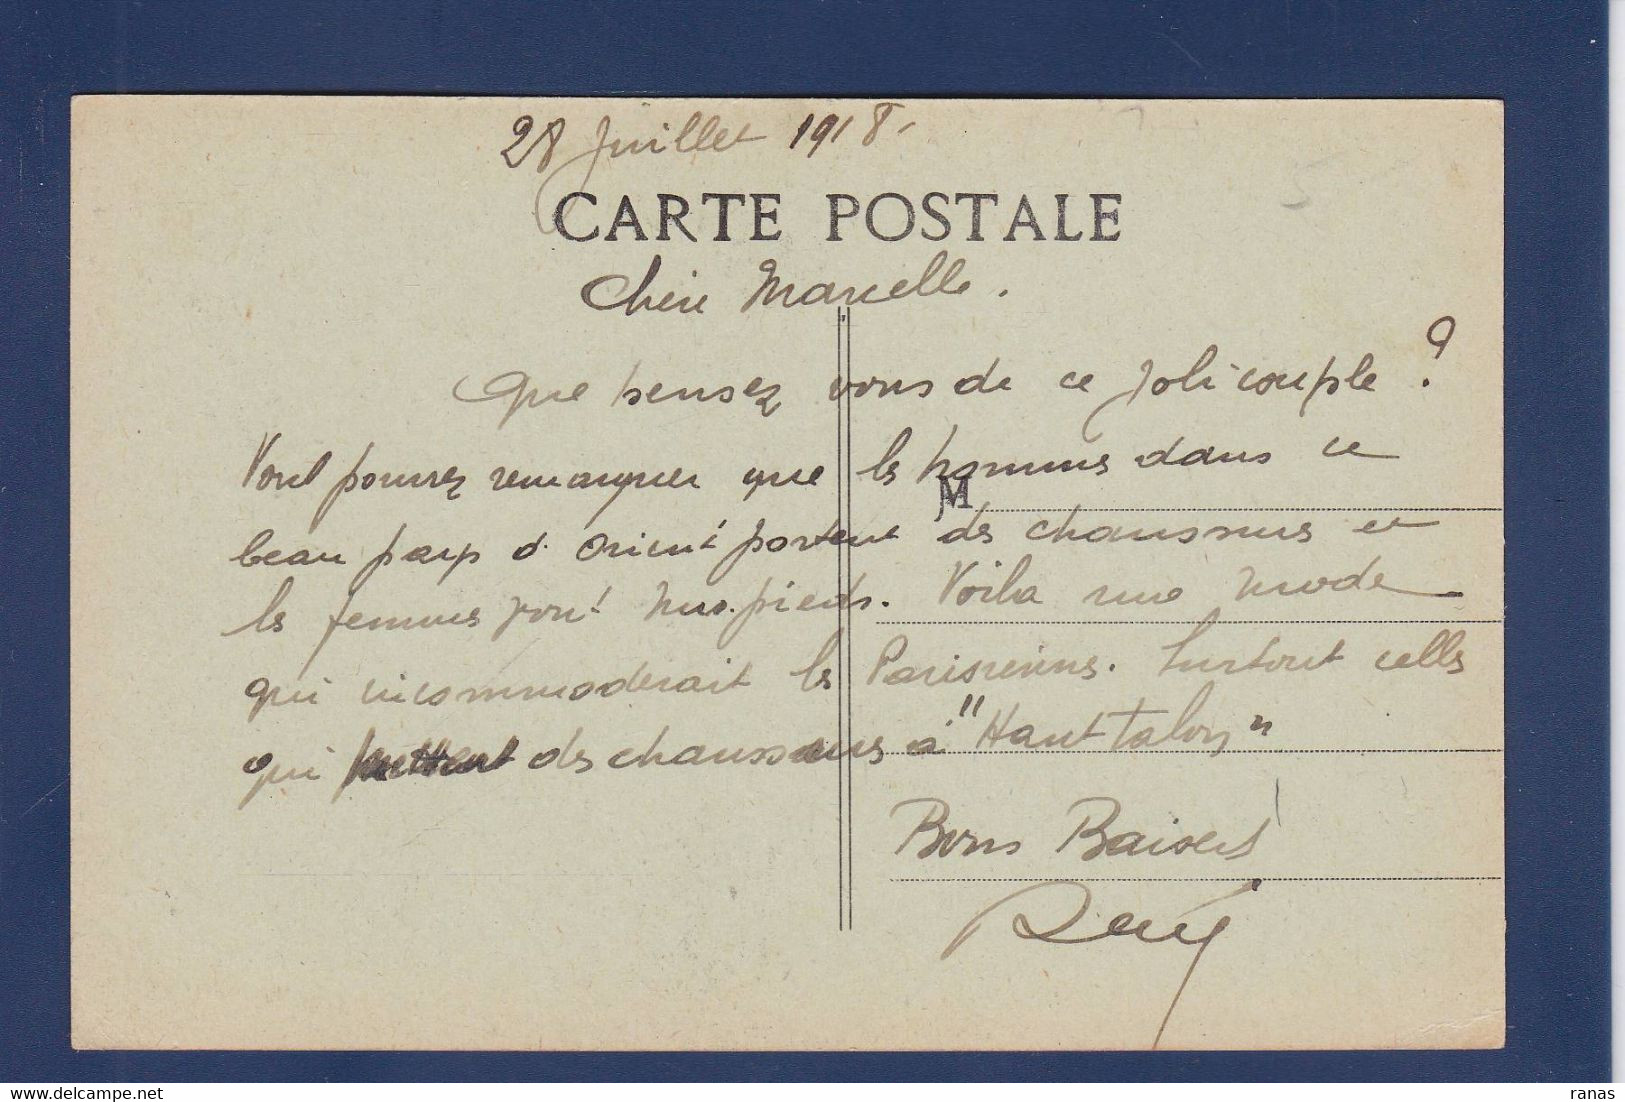 28 Juillet 1918.
CARTE POSTALE
Chère Marcelle.
Que pensez vous de ce joli couple ?
Vous pourrez remarquer que les hommes dans ce
M
beau pays d'Orient portent des chaussures et
les femmes vont nus-pieds. Voila une mode
qui incommoderait les Parisiennes. Surtout celles
qui mettent des chaussures à "Haut talons"
Bons Baisers
ranas